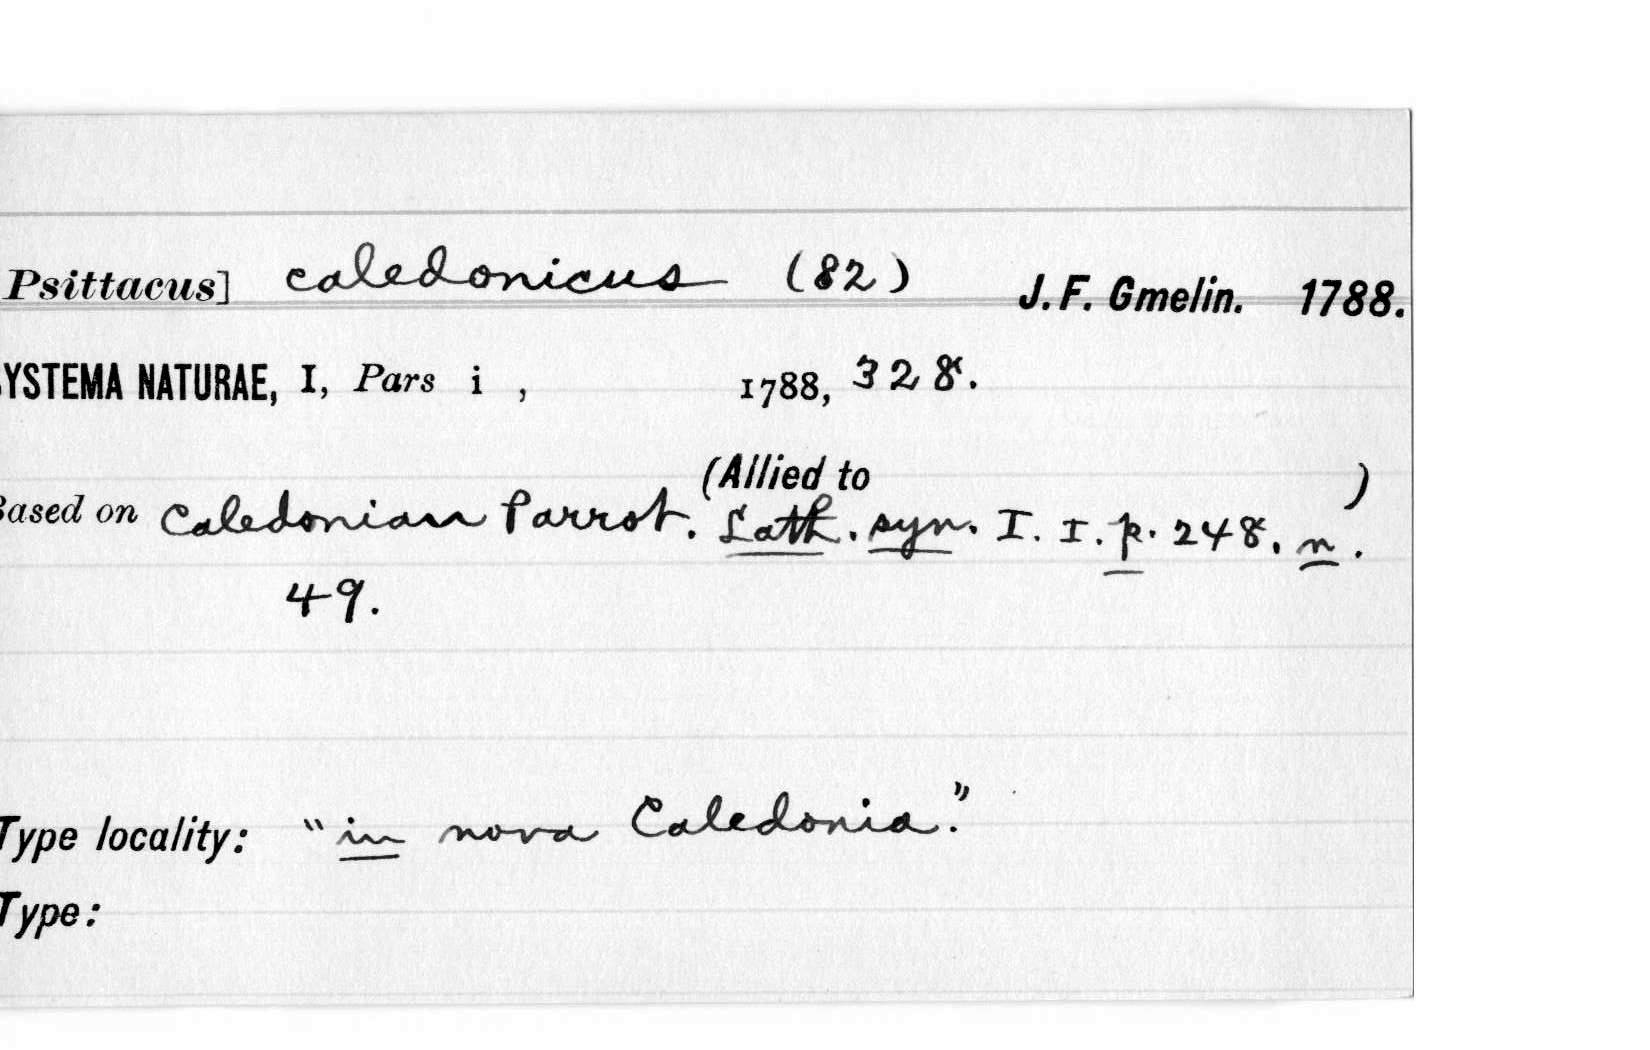 Psittacus] caledonicus (82) J. F. Gmelin. 1788.
YSTEMA NATURAE, I, Pars i , 1788, 328.
(Allied to )
Based on Caledonian Parrot. Lath. syn. I. I. p. 248. n.
49.
Type locality: "in nova Caledonia."
Type: